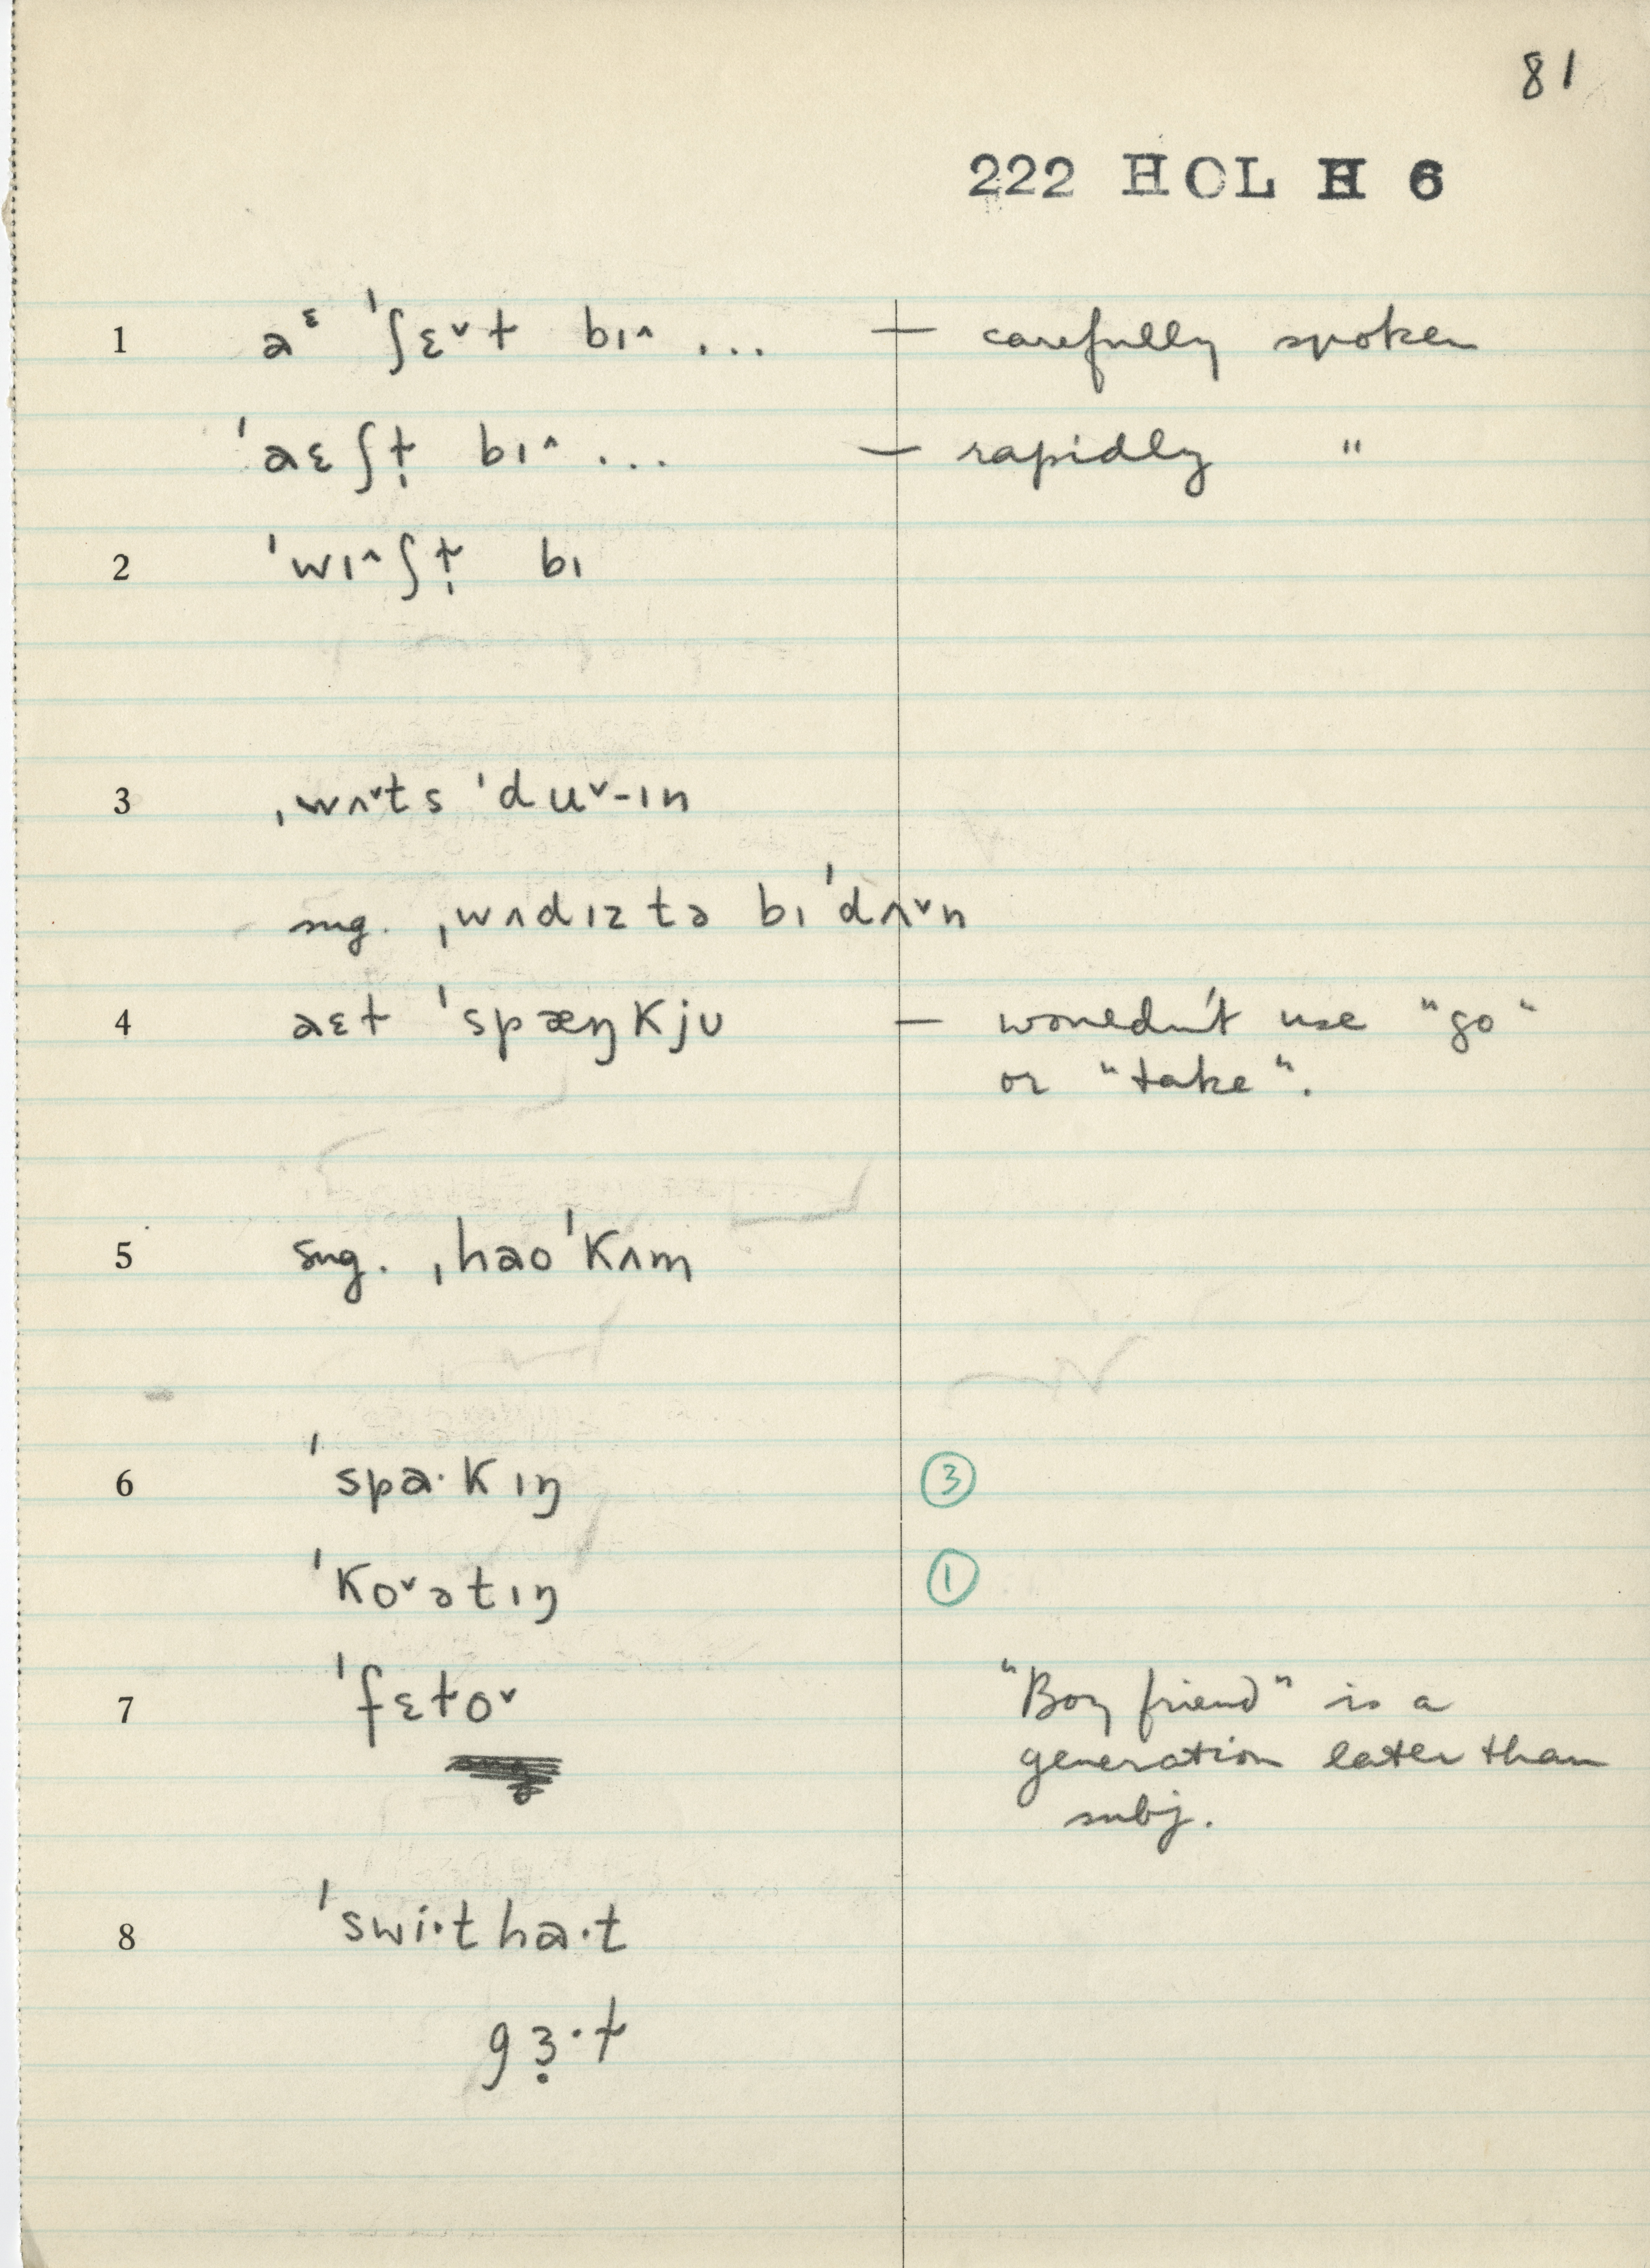 81
222 HOL H 6
1 aᵋ ˈʃɛ˅ɫ bɪ˄ ... — carefully spoken
ˈaɛʃɫ̩ bɪ˄ ... — rapidly "
2 ˈwɪ˄ʃɫ̩ bɪ
3 ˌwʌ˅ts ˈdu˅-ɪn
sug. ˌwʌdɪz tə bɪˈdʌ˅n
4 aɛɫ ˈspæŋkjʊ — wouldn't use "go"
or "take".
5 sug. ˌhaoˈkʌm
6 ˈspa·kɪŋ ③
ˈko˅ətɪŋ ①
7 ˈfɛɫo˅ "Boy friend" is a
generation later than
subj.
8 ˈswi·tha·t
gɜ̣·ɫ